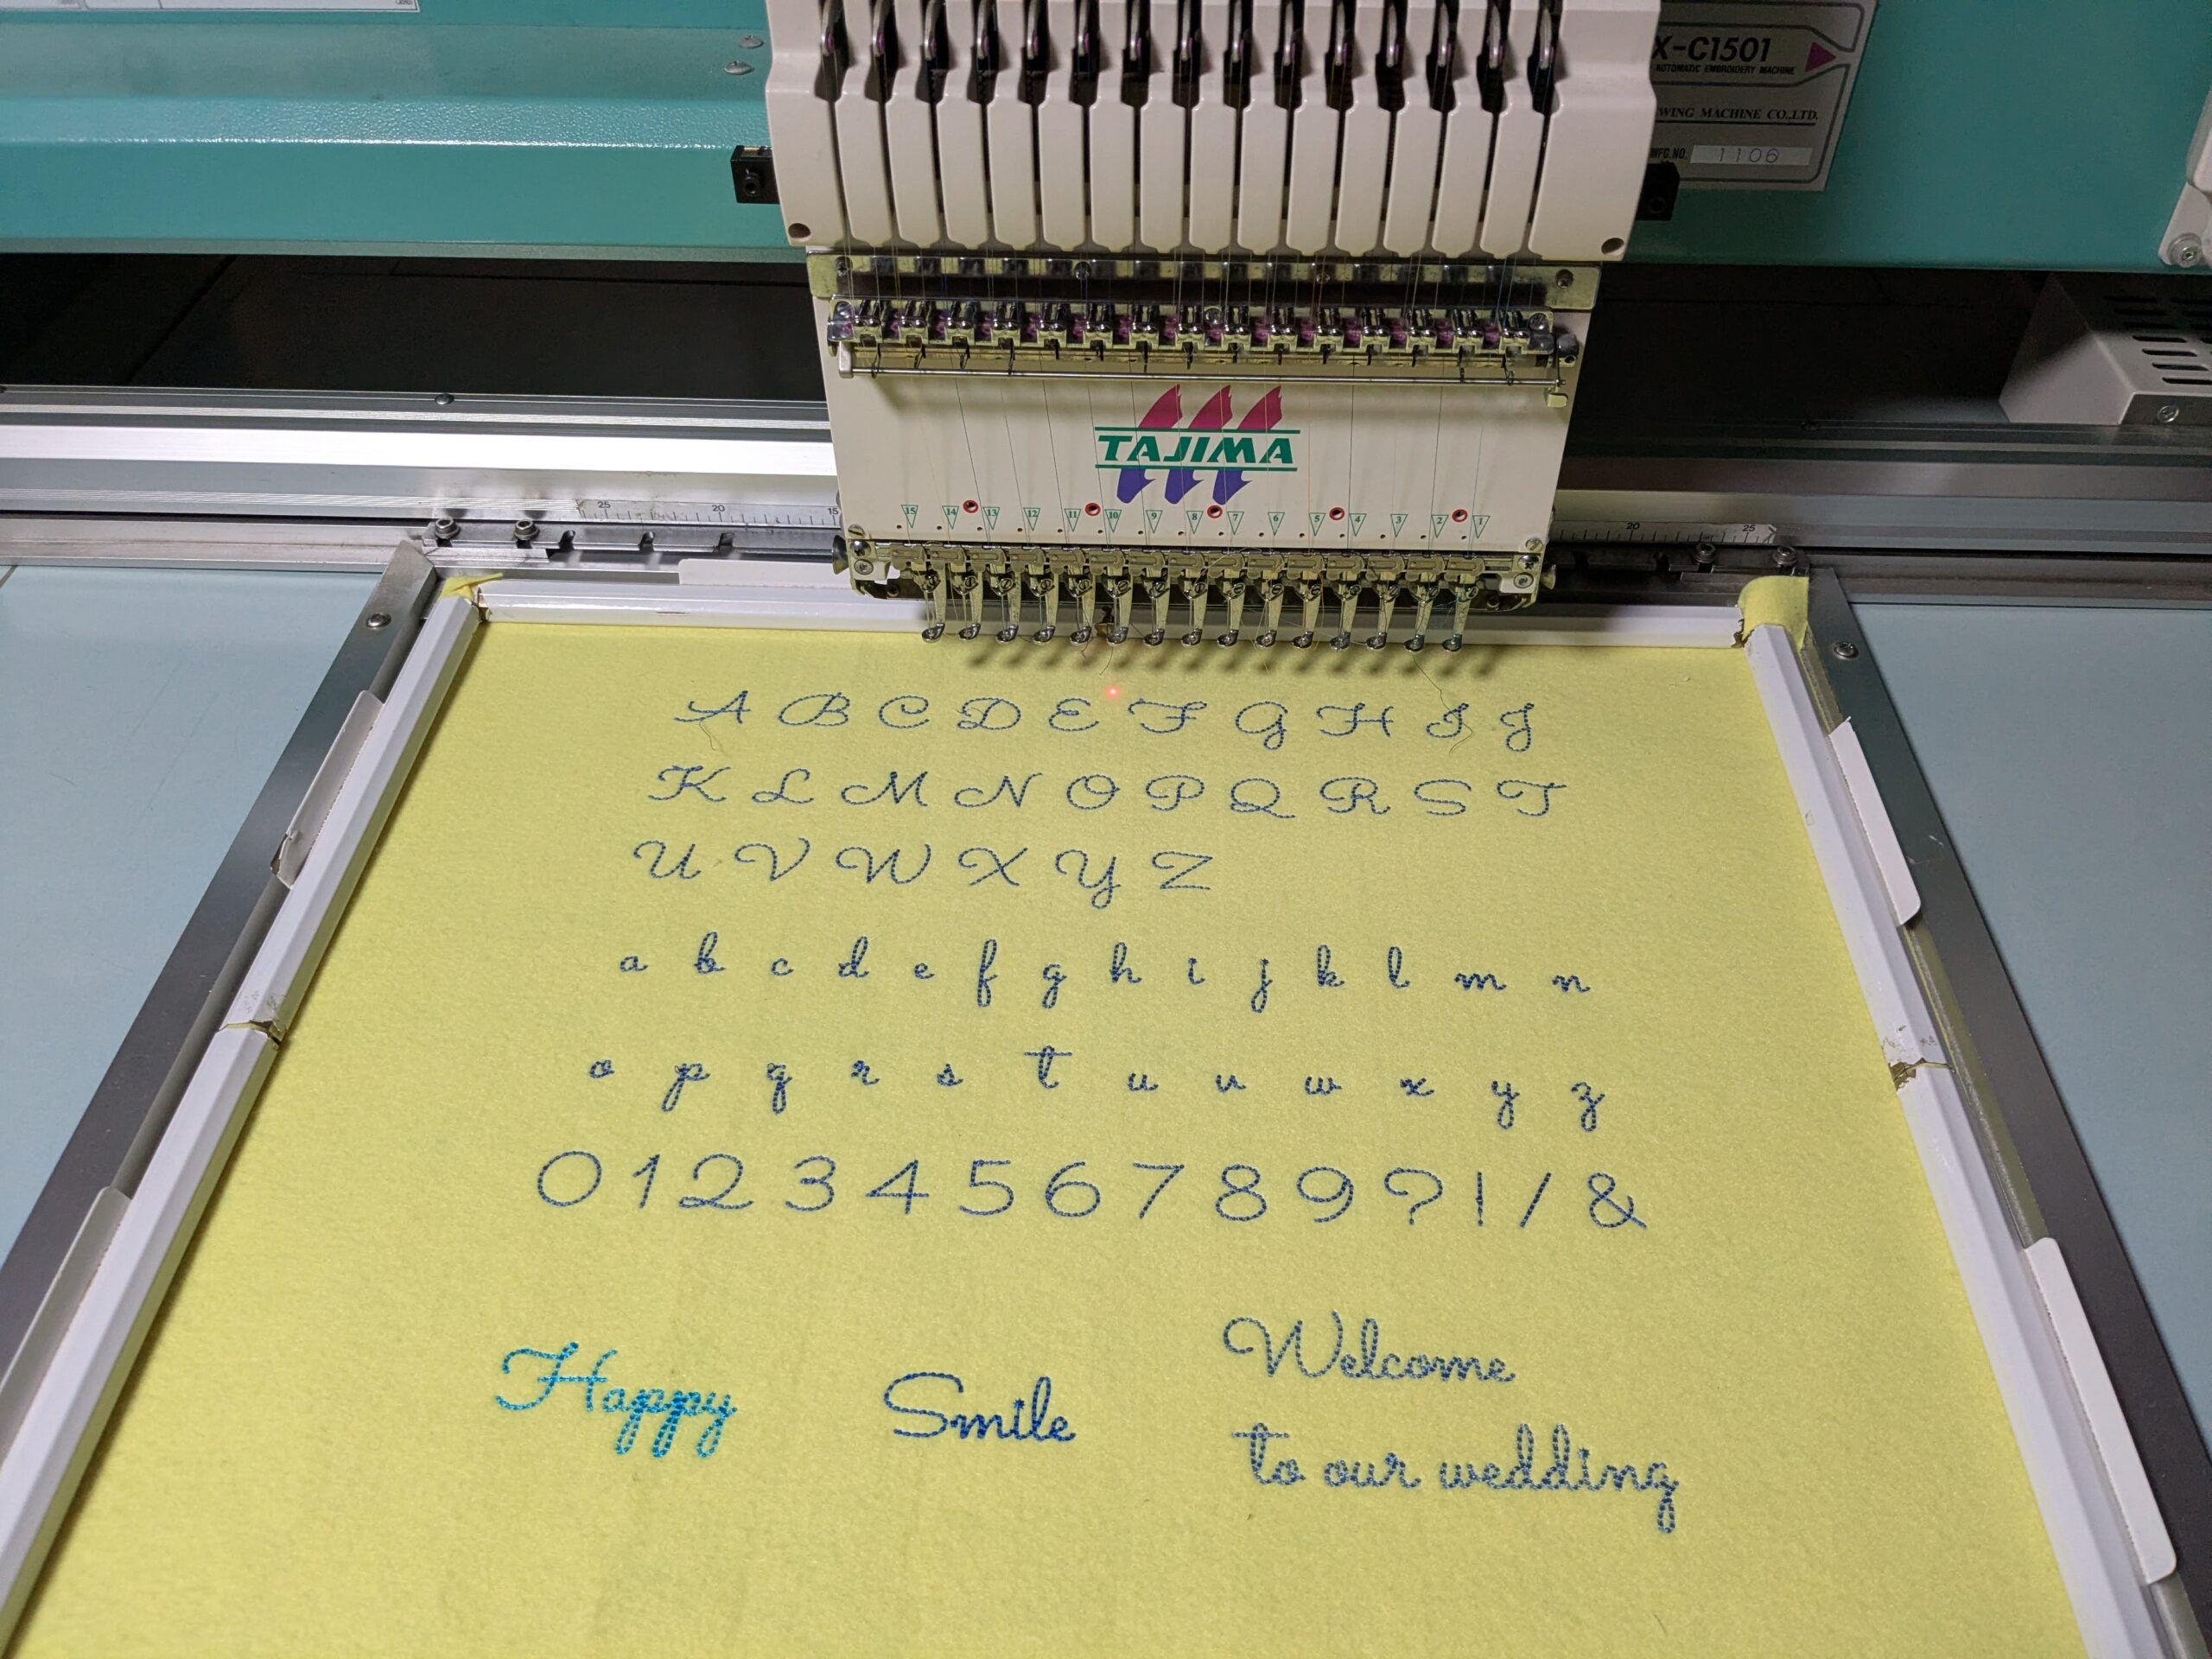 X-C1501
AUTOMATIC EMBROIDERY MACHINE
WING MACHINE CO.,LTD.
MFG.NO. 1106
TAJIMA
25 20 15
15 14 13 12 11 10 9 8 7 6 5 4 3 2 1
20 25
A B C D E F G H I J
K L M N O P Q R S T
U V W X Y Z
a b c d e f g h i j k l m n
o p q r s t u v w x y z
0 1 2 3 4 5 6 7 8 9 ? ! / &
Happy Smile Welcome
to our wedding